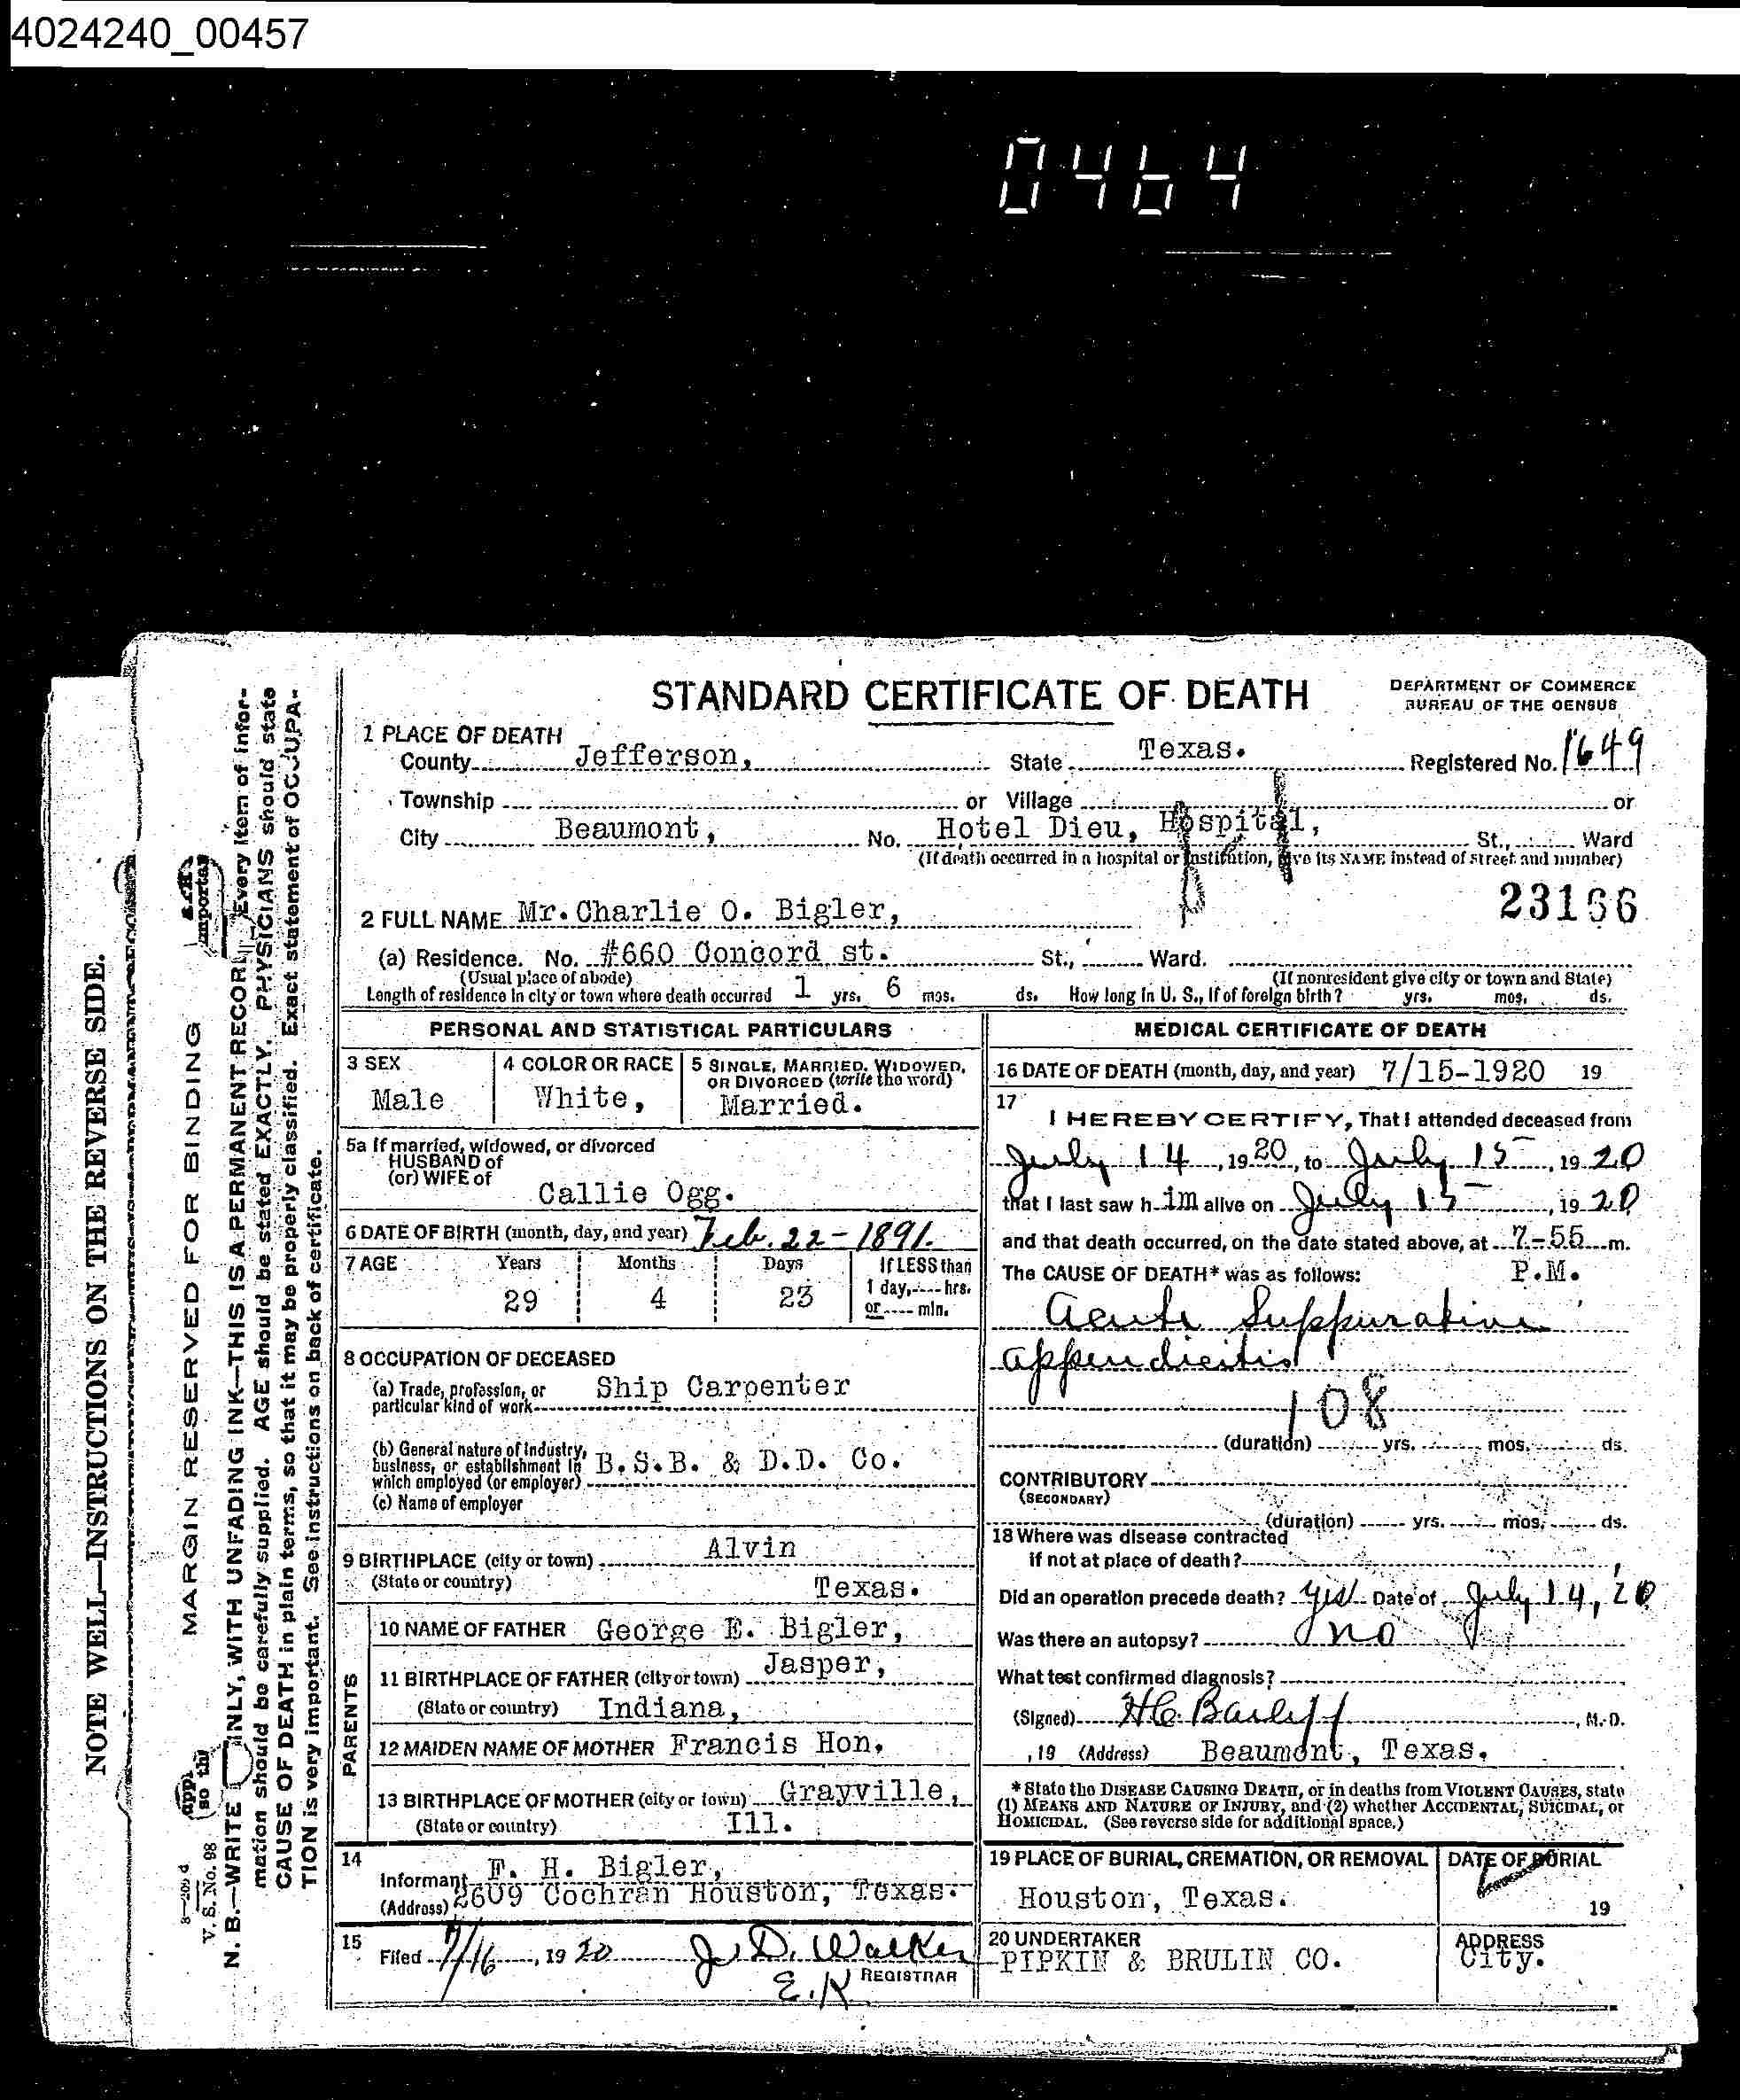 4024240_00457
0464
STANDARD CERTIFICATE OF DEATH
DEPARTMENT OF COMMERCE
BUREAU OF THE CENSUS
1 PLACE OF DEATH
County Jefferson, State Texas. Registered No. 1649
Township or Village or
City Beaumont, No. Hotel Dieu, Hospital, St., Ward
(If death occurred in a hospital or institution, give its NAME instead of street and number)
23166
2 FULL NAME Mr. Charlie O. Bigler,
(a) Residence. No. #660 Concord st. St., Ward.
(Usual place of abode) (If nonresident give city or town and State)
Length of residence in city or town where death occurred 1 yrs. 6 mos. ds. How long in U. S., if of foreign birth? yrs. mos. ds.
PERSONAL AND STATISTICAL PARTICULARS
3 SEX 4 COLOR OR RACE 5 SINGLE, MARRIED, WIDOWED,
OR DIVORCED (write the word)
Male White, Married.
5a If married, widowed, or divorced
HUSBAND of
(or) WIFE of
Callie Ogg.
6 DATE OF BIRTH (month, day, and year) Feb. 22-1891.
7 AGE Years Months Days If LESS than
1 day, hrs.
or min.
29 4 23
8 OCCUPATION OF DECEASED
(a) Trade, profession, or
particular kind of work Ship Carpenter
(b) General nature of industry,
business, or establishment in
which employed (or employer) B.S.B. & D.D. Co.
(c) Name of employer
9 BIRTHPLACE (city or town) Alvin
(State or country) Texas.
PARENTS
10 NAME OF FATHER George E. Bigler,
11 BIRTHPLACE OF FATHER (city or town) Jasper,
(State or country) Indiana,
12 MAIDEN NAME OF MOTHER Francis Hon.
13 BIRTHPLACE OF MOTHER (city or town) Grayville,
(State or country) Ill.
14
Informant F. H. Bigler,
(Address) 2609 Cochran Houston, Texas.
15
Filed 7/16, 19 20 J. D. Walker
E.K REGISTRAR
MEDICAL CERTIFICATE OF DEATH
16 DATE OF DEATH (month, day, and year) 7/15-1920 19
17
I HEREBY CERTIFY, That I attended deceased from
July 14, 1920, to July 15, 1920
that I last saw him alive on July 15, 1920
and that death occurred, on the date stated above, at 7-55 m.
The CAUSE OF DEATH* was as follows: P.M.
Acute Suppurative
appendicitis
108
(duration) yrs. mos. ds.
CONTRIBUTORY
(SECONDARY)
(duration) yrs. mos. ds.
18 Where was disease contracted
if not at place of death?
Did an operation precede death? yes Date of July 14, 20
Was there an autopsy? no
What test confirmed diagnosis?
(Signed) M.D.
, 19 (Address) Beaumont, Texas.
* State the DISEASE CAUSING DEATH, or in deaths from VIOLENT CAUSES, state
(1) MEANS AND NATURE OF INJURY, and (2) whether ACCIDENTAL, SUICIDAL, or
HOMICIDAL. (See reverse side for additional space.)
19 PLACE OF BURIAL, CREMATION, OR REMOVAL DATE OF BURIAL
Houston, Texas. 19
20 UNDERTAKER ADDRESS
PIPKIN & BRULIN CO. City.
NOTE WELL—INSTRUCTIONS ON THE REVERSE SIDE.
MARGIN RESERVED FOR BINDING
V. S. No. 98
N. B.—WRITE PLAINLY, WITH UNFADING INK—THIS IS A PERMANENT RECORD. Every item of infor-
mation should be carefully supplied. AGE should be stated EXACTLY. PHYSICIANS should state
CAUSE OF DEATH in plain terms, so that it may be properly classified. Exact statement of OCCUPA-
TION is very important. See instructions on back of certificate.